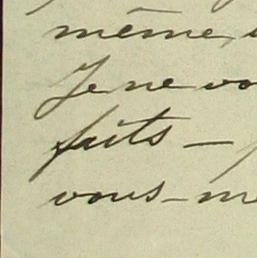 même,
Je ne vo
faits —
vous-m